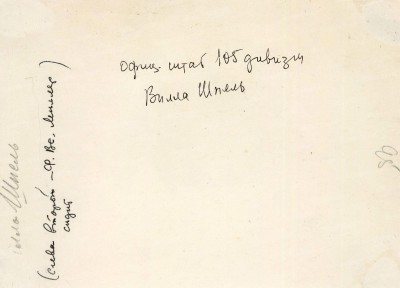 офиц. штаб 105 дивизии
Вилла Шпель
(слева второй – Ф. Вс.
сидит
Шпель